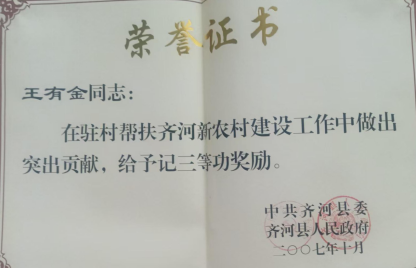 荣誉证书
王有金同志：
在驻村帮扶齐河新农村建设工作中做出
突出贡献，给予记三等功奖励。
中共齐河县委
齐河县人民政府
二〇〇七年十月